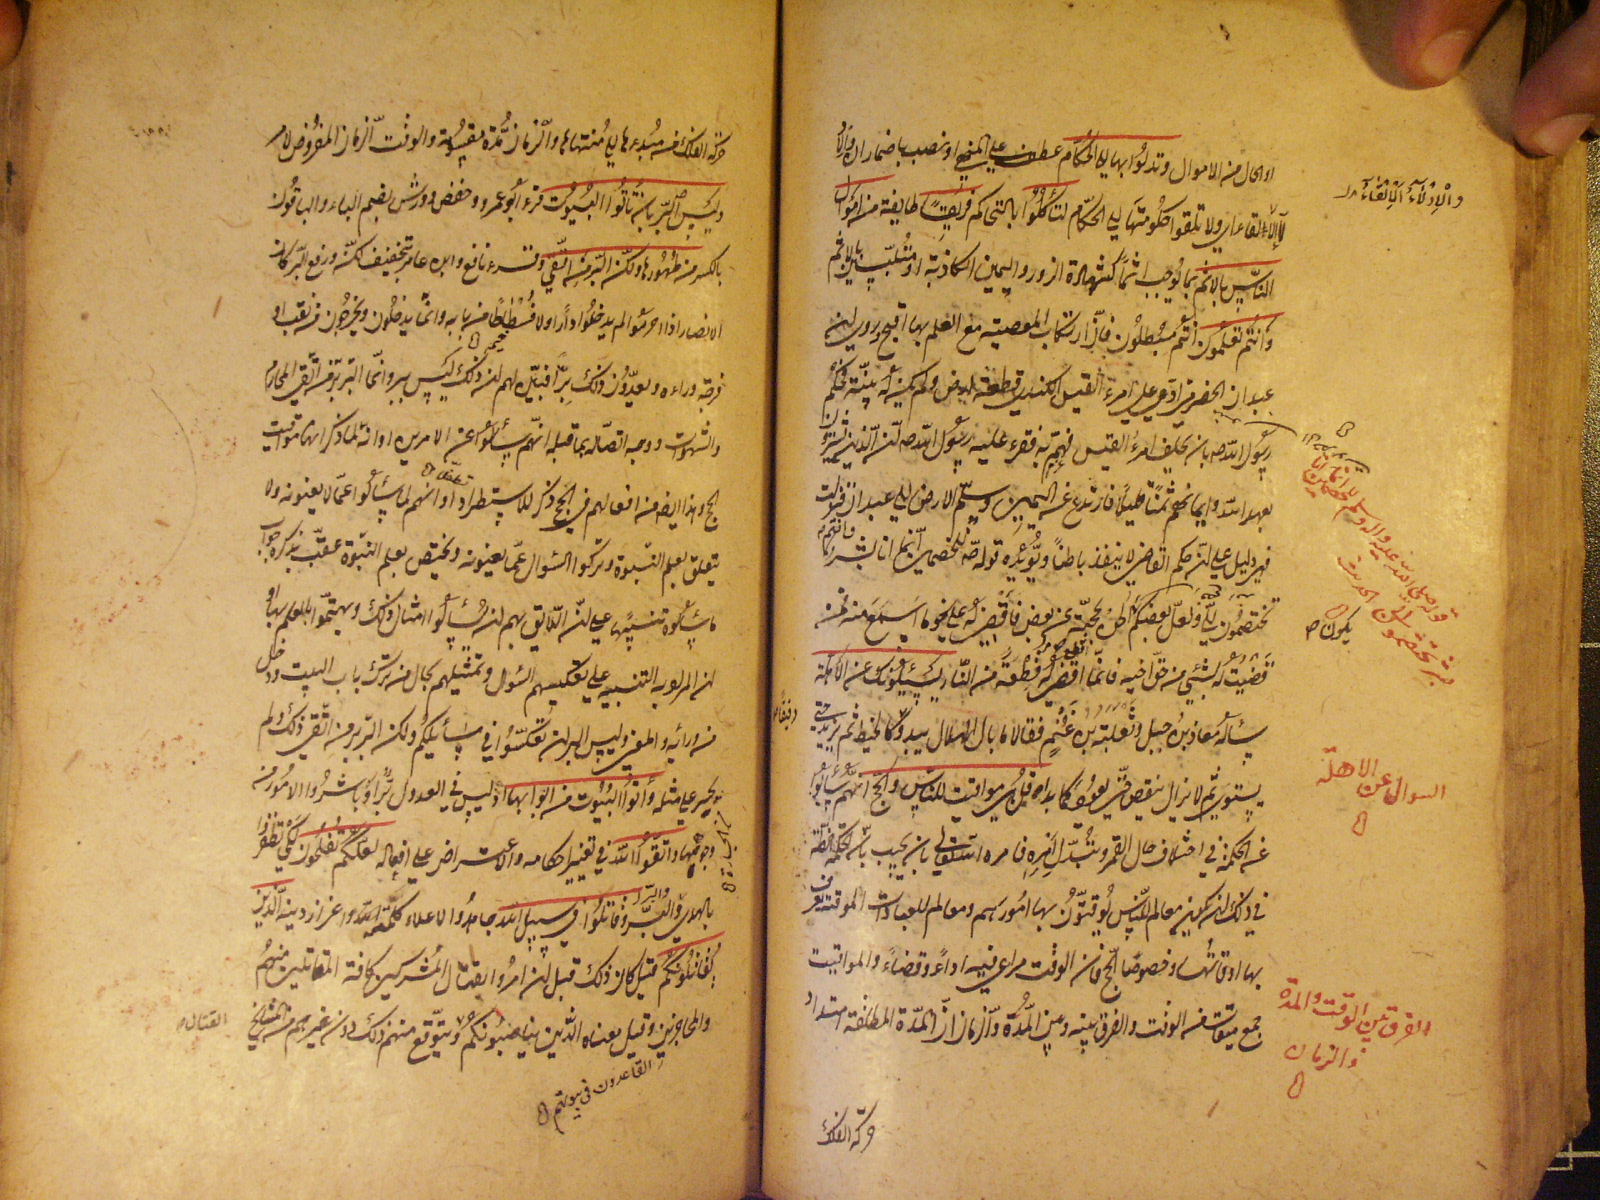 او بحال من الاموال وتدلوا بها الى الحكام عطف على المنهي او نصب باضمار ان والادلاء
الالقاء اي ولا تلقوا حكومتها الى الحكام لتأكلوا بالتحاكم فريقا طايفة من اموال
الناس بالاثم بما يوجب اثما كشهادة الزور واليمين الكاذبة او متلبسين بالاثم
وانتم تعلمون انكم مبطلون فان ارتكاب المعصية مع العلم بها اقبح روى ان
عبدان الحضرمي ادعى على امرء القيس الكندي قطعة ارض ولم يكن له بينة فحكم
رسول الله صه بان يحلف امرء القيس فهم به فقرء عليه رسول الله صه ان الذين يشترون
بعهد الله وايمانهم ثمنا قليلا فارتدع عن اليمين وسلم الارض الى عبدان فنزلت
فهي دليل على ان حكم القاضي لا ينفذ باطنا ويؤيده قوله صه للخصمين انما انا بشر وانتم
تختصمون الي ولعل بعضكم الحن بحجته من بعض فاقضي له على نحو ما اسمع منه فمن
قضيت له بشيء من حق اخيه فانما اقضي له قطعة من النار يسئلونك عن الاهلة
سأله معاذ بن جبل وثعلبة بن غنم فقالا ما بال الهلال يبدو دقيقا كالخيط ثم يزيد حتى
يستوي ثم لا يزال ينقص حتى يعود كما بدا قل هي مواقيت للناس والحج انهم سألوا
عن الحكمة في اختلاف حال القمر وتبدل امره فامره الله تعالى بان يجيب بان الحكمة الظاهرة
في ذلك ان يكون معالم للناس يوقتون بها امورهم ومعالم للعبادات الموقتة يعرف
بها اوقاتها وخصوصا الحج فان الوقت مراعى فيه اداء وقضاء والمواقيت
جمع ميقات من الوقت والفرق بينه وبين المدة والزمان ان المدة المطلقة امتداد
حركة الفلك
والادلاء الالقاء
قوله صلى الله عليه واله وسلم للخصمين انما انا
بشر تختصمون الي الحديث
يكون
السوال عن الاهلة
الفرق بين الوقت والمدة
والزمان
دقيقا
حركة الفلك من مبدءها الى منتهاها والزمان مدة مقسومة والوقت الزمان المفروض لامر
وليس البر بان تأتوا البيوت قرء ابو عمرو وحفص وورش بضم الباء والباقون
بالكسر من ظهورها ولكن البر من اتقى وقرء نافع وابن عامر بتخفيف لكن ورفع البر كان
الانصار اذا احرموا لم يدخلوا دارا ولا فسطاطا من بابه وانما يدخلون ويخرجون من نقب او
فرجة وراءه ويعدون ذلك برا فبين لهم ان ذلك ليس ببر وانما البر بر من اتقى المحارم
والشهوات ووجه اتصاله بما قبله انهم سألوا عن الامرين او انه لما ذكر انها مواقيت
الحج وهذا ايضا من افعالهم في الحج ذكر للاستطراد او انهم لما سألوا عما لا يعنونه ولا
يتعلق بعلم النبوة وتركوا السوال عما يعنونه ويختص بعلم النبوة عقب بذكره جواب
ما سألوه تنبيها على ان اللايق بهم ان يسألوا امثال ذلك ويهتموا بالعلم بها او
ان المراد به التنبيه على تعكيسهم السوال وتمثيلهم بحال من ترك باب البيت ودخل
من ورائه والمعنى وليس البر ان تعكسوا في مسائلكم ولكن البر بر من اتقى ذلك ولم
يجسر على مثله وأتوا البيوت من ابوابها اذ ليس في العدول بر او باشروا الامور من
وجوهها واتقوا الله في تغيير احكامه والاعتراض على افعاله لعلكم تفلحون لكي تظفروا
بالهدى والبر وقاتلوا في سبيل الله جاهدوا لاعلاء كلمته واعزاز دينه الذين
يقاتلونكم قيل كان ذلك قبل ان امروا بقتال المشركين كافة المقاتلين منهم
والمحاجزين وقيل معناه الذين يناصبونكم ويتوقع منهم ذلك دون غيرهم من المشايخ
القتال
القاعدون في بيوتهم